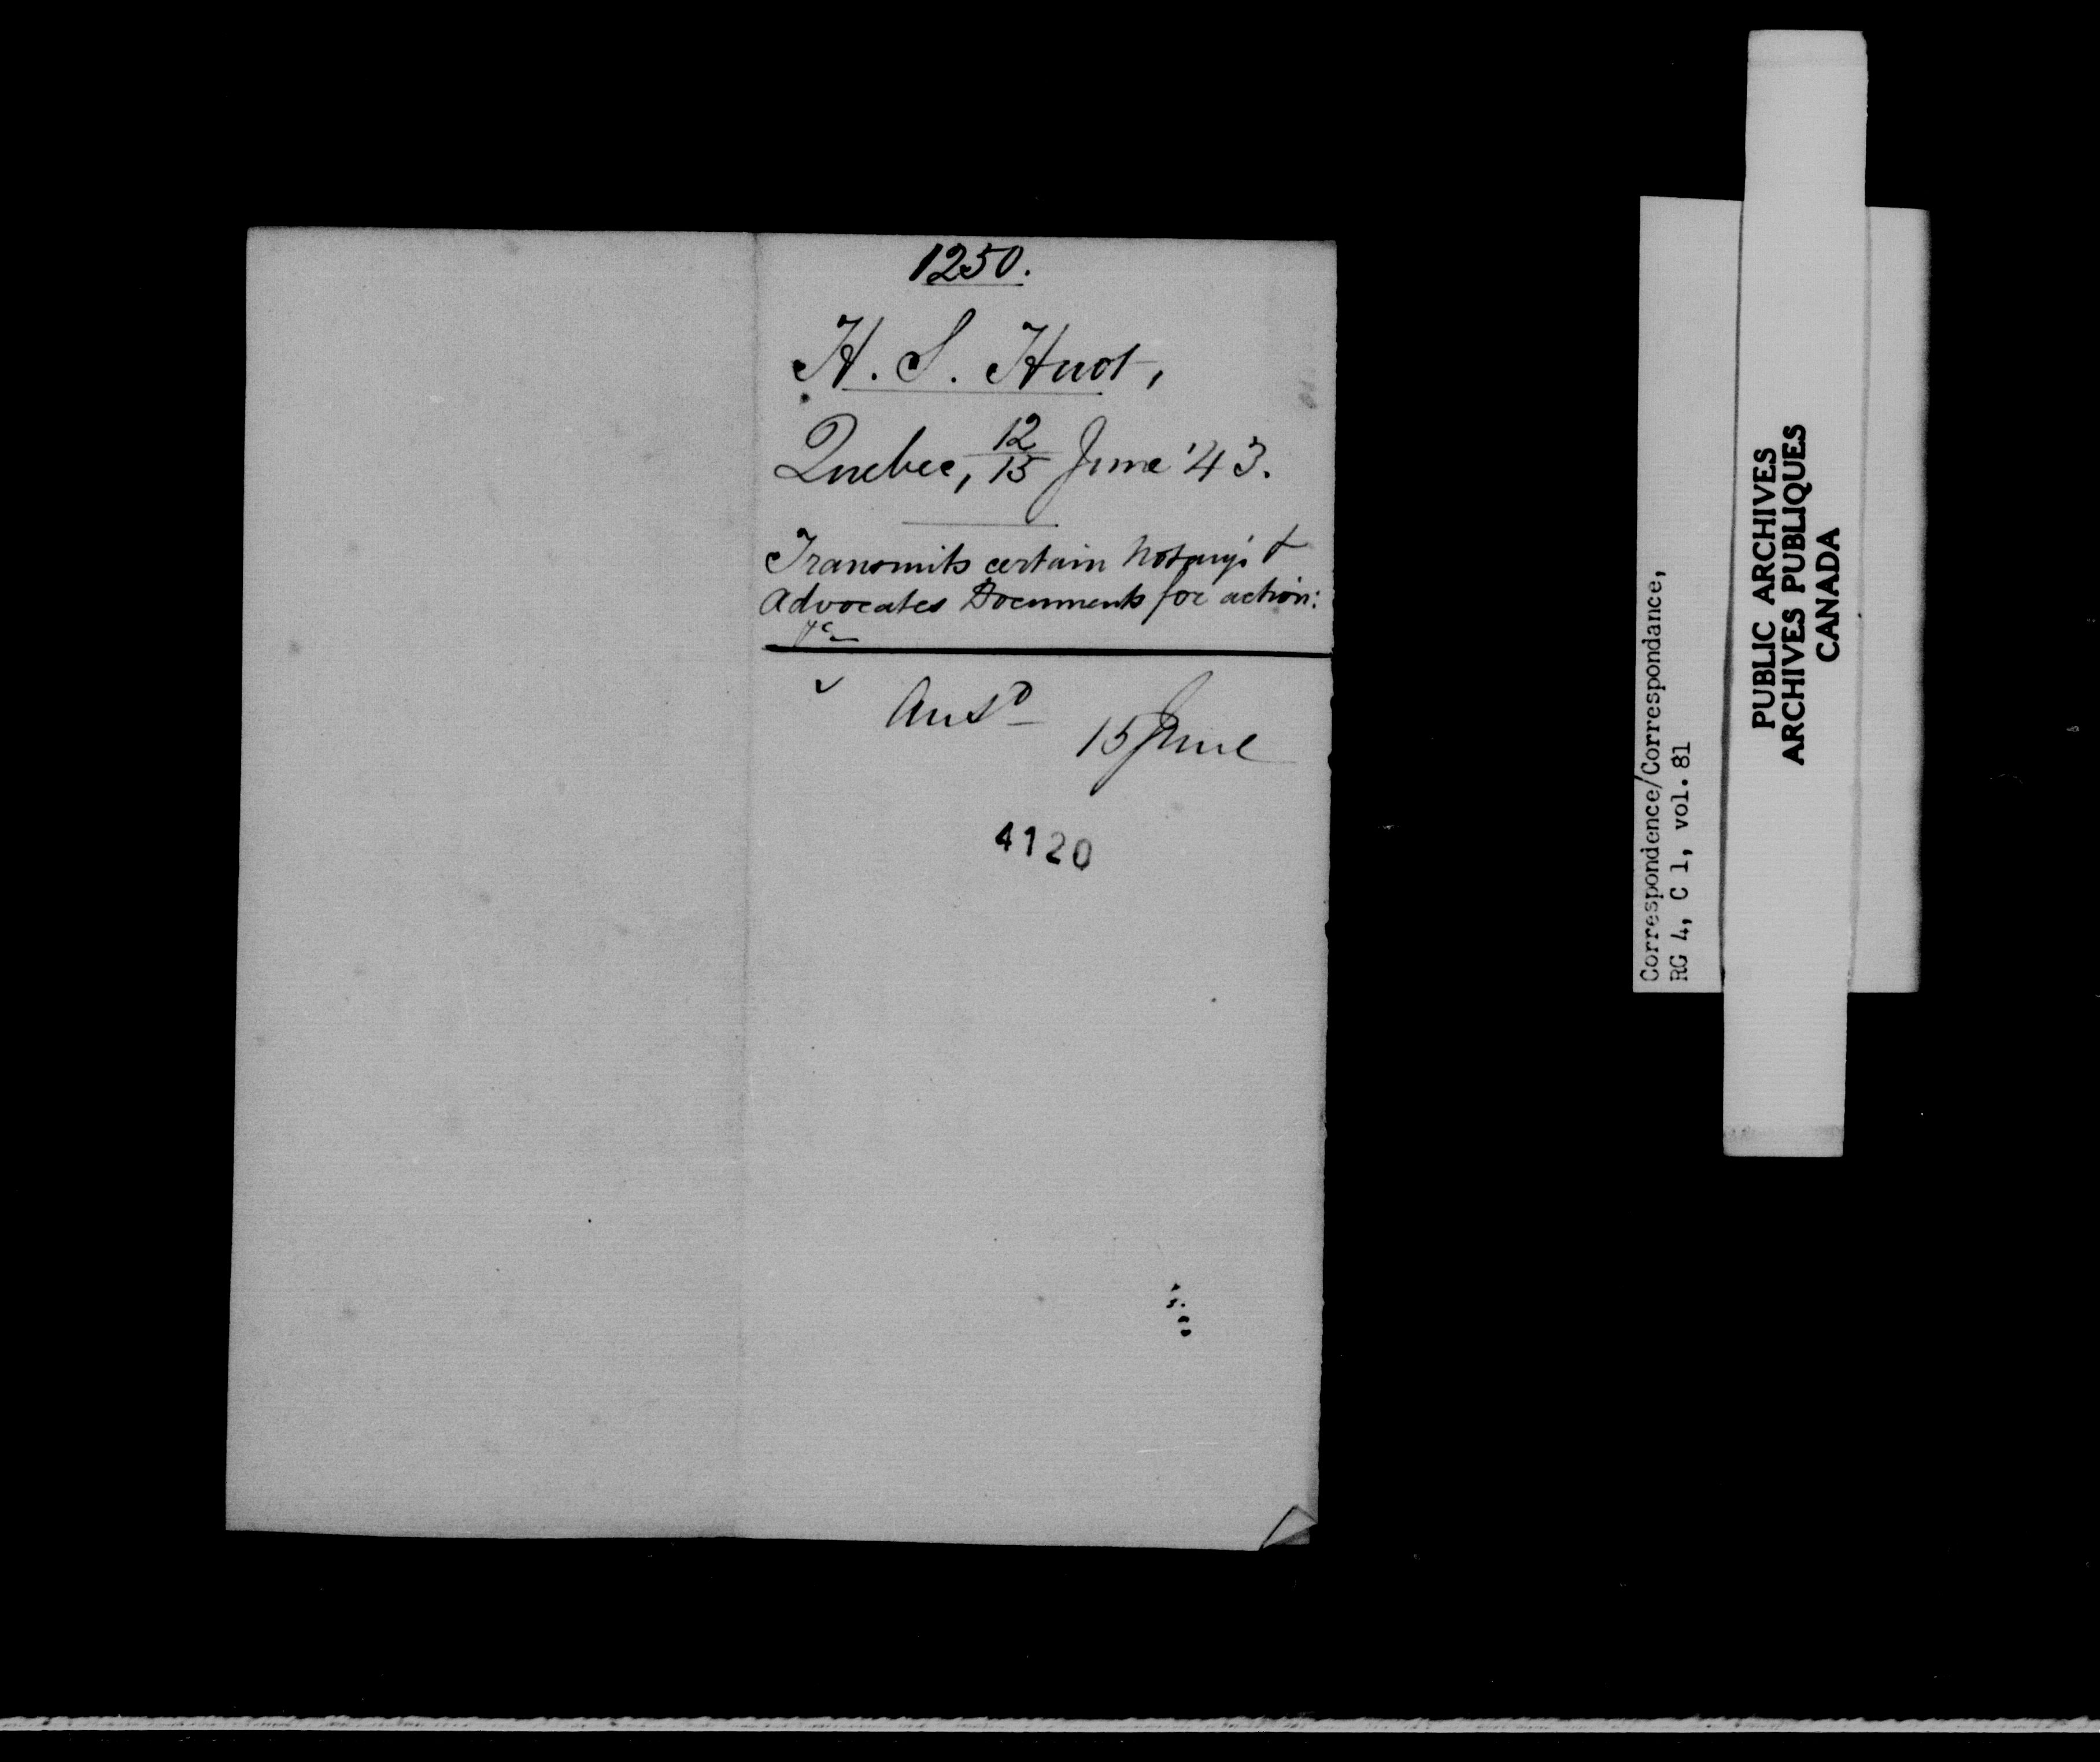 1250.
H. S. Huot,
Quebec, 12/15 June '43.
Transmits certain Notary's &
Advocates Documents for action:
&c
Ansd
15 June
4120
Correspondence/Correspondance,
RG 4, C 1, vol. 81
PUBLIC ARCHIVES
ARCHIVES PUBLIQUES
CANADA